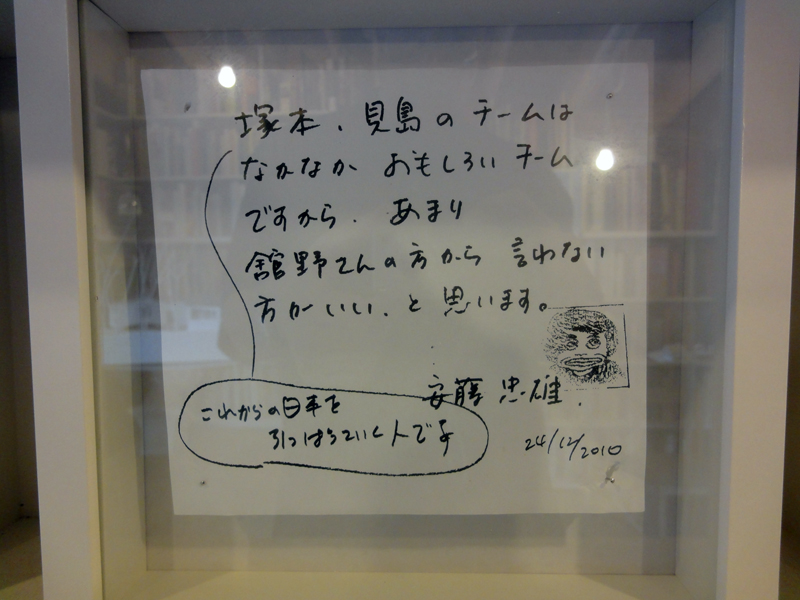 塚本、貝島のチームは
なかなか おもしろい チーム
ですから、あまり
舘野さんの方から 言わない
方がいい、と 思います。
安藤 忠雄.
これからの日本を
引っぱっていく人です
24/12/2010